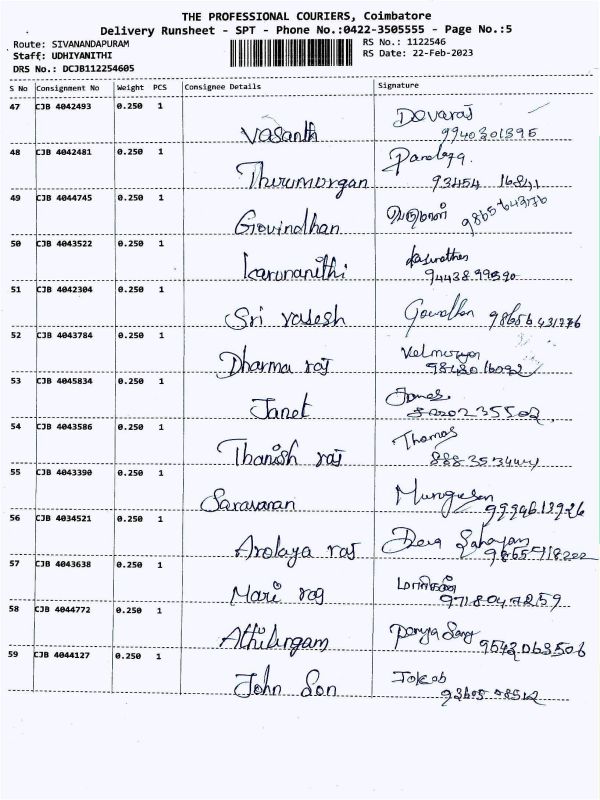 THE PROFESSIONAL COURIERS, Coimbatore
Delivery Runsheet - SPT - Phone No.:0422-3505555 - Page No.:5
Route: SIVANANDAPURAM RS No.: 1122546
Staff: UDHIYANITHI RS Date: 22-Feb-2023
DRS No.: DCJB112254605
S No Consignment No Weight PCS Consignee Details Signature
47 CJB 4042493 0.250 1
Vasanth Devaraj
9940301395
48 CJB 4042481 0.250 1
Thirumurgan
93454 16841
49 CJB 4044745 0.250 1
Govindhan
50 CJB 4043522 0.250 1
Karunanithi
9443899390
51 CJB 4042304 0.250 1
Sri vasesh
52 CJB 4043784 0.250 1
Dharma raj Velmurugan
53 CJB 4045834 0.250 1
Janet
54 CJB 4043586 0.250 1
Thanish raj Thomas
55 CJB 4043390 0.250 1
Saravanan Murugesan
56 CJB 4034521 0.250 1
Arolaya raj Deva Sahayam
57 CJB 4043638 0.250 1
Mari raj
58 CJB 4044772 0.250 1
Athilingam
9543063506
59 CJB 4044127 0.250 1
John Son Jokob